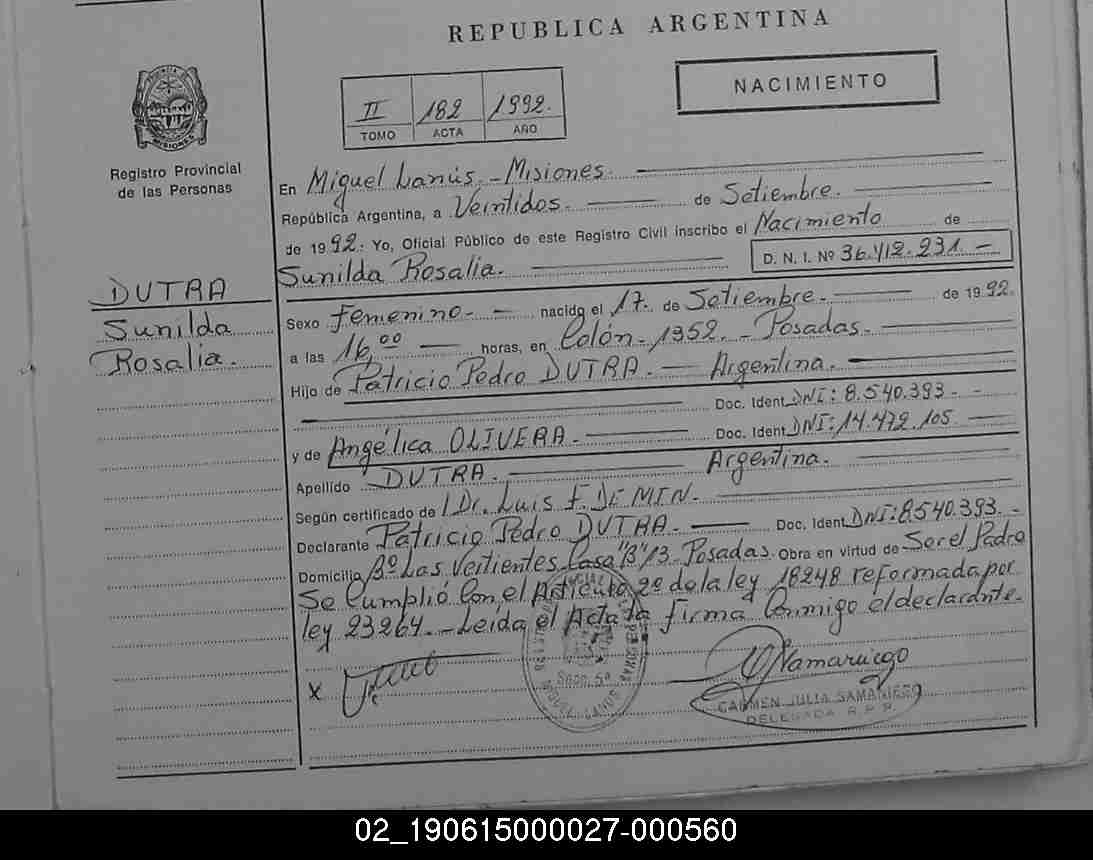 REPUBLICA ARGENTINA
NACIMIENTO
II 182 1992.
TOMO ACTA AÑO
MISIONES
Registro Provincial
de las Personas
En Miguel Lanús.- Misiones.
República Argentina, a Veintidos. de Setiembre.
de 1992. Yo, Oficial Público de este Registro Civil inscribo el Nacimiento de
Sunilda Rosalia. D. N. I. Nº 36.412.231.-
DUTRA
Sunilda
Rosalia.
Sexo Femenino.- nacido el 17. de Setiembre. de 1992.
a las 16,00 horas, en Colón-1352.- Posadas.
Hijo de Patricio Pedro DUTRA. Argentina.
Doc. Ident DNI: 8.540.393.
y de Angélica OLIVERA. Doc. Ident DNI: 14.472.105.
Apellido DUTRA. Argentina.
Según certificado de Dr. Luis F. DE MIN.
Declarante Patricio Pedro DUTRA. Doc. Ident DNI: 8.540.393.
Domicilio Bº Las Vertientes Casa "B" 13 Posadas. Obra en virtud de Ser el Padre
Se Cumplió Con el Artículo 2º de la ley 18248 reformada por
ley 23264.- Leida el Acta la firma Conmigo el declarante.-
X
Secc. 5ª
MIGUEL LANUS
CARMEN JULIA SAMANIEGO
DELEGADA R.P.P.
02_190615000027-000560